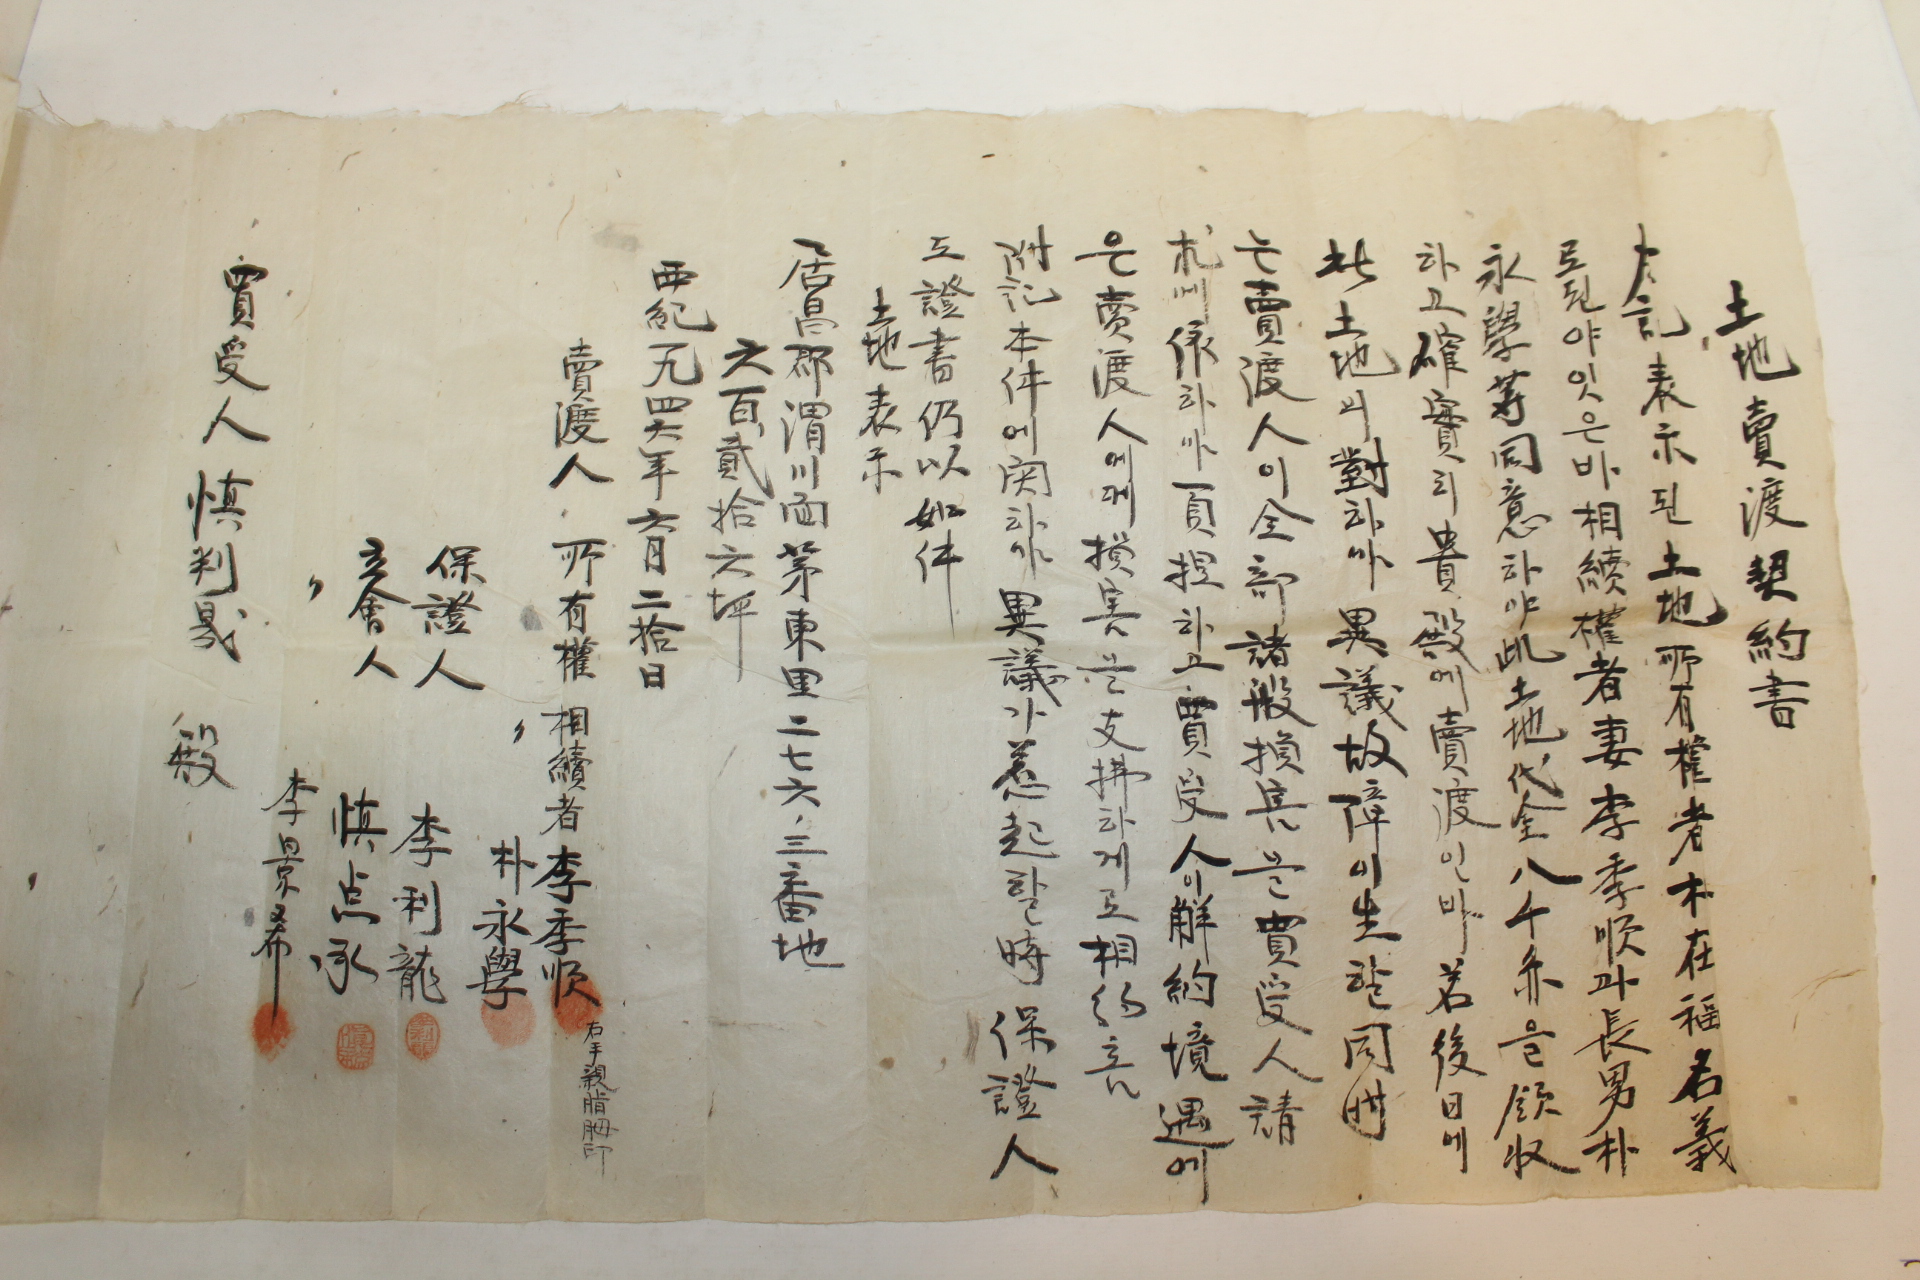 土地賣渡契約書
左記表示된土地所有權者朴在福名義
로되야잇은바相續權者妻李季順과長男朴
永學等同意하야此土地代金八千원을領収
하고確實히貴殿에賣渡인바若後日에
此土地의對하야異議故障이生할同時
는賣渡人이全部諸般損害을買受人請
求에依하야負担하고買受人이解約境遇에
은賣渡人에게損害을支拂하게로相約홈
附記本件에関하야異議가惹起할時保證人
도證書仍以如件
土地表示
居昌郡渭川面茅東里二七六,三番地
六百貳拾六坪
西紀一九四六年六月二拾日
賣渡人 所有權相續者李季順
右手親指拇印
〃 朴永學
保證人 李利龍
立會人 愼点承
〃 李景希
買受人 愼判晟 殿